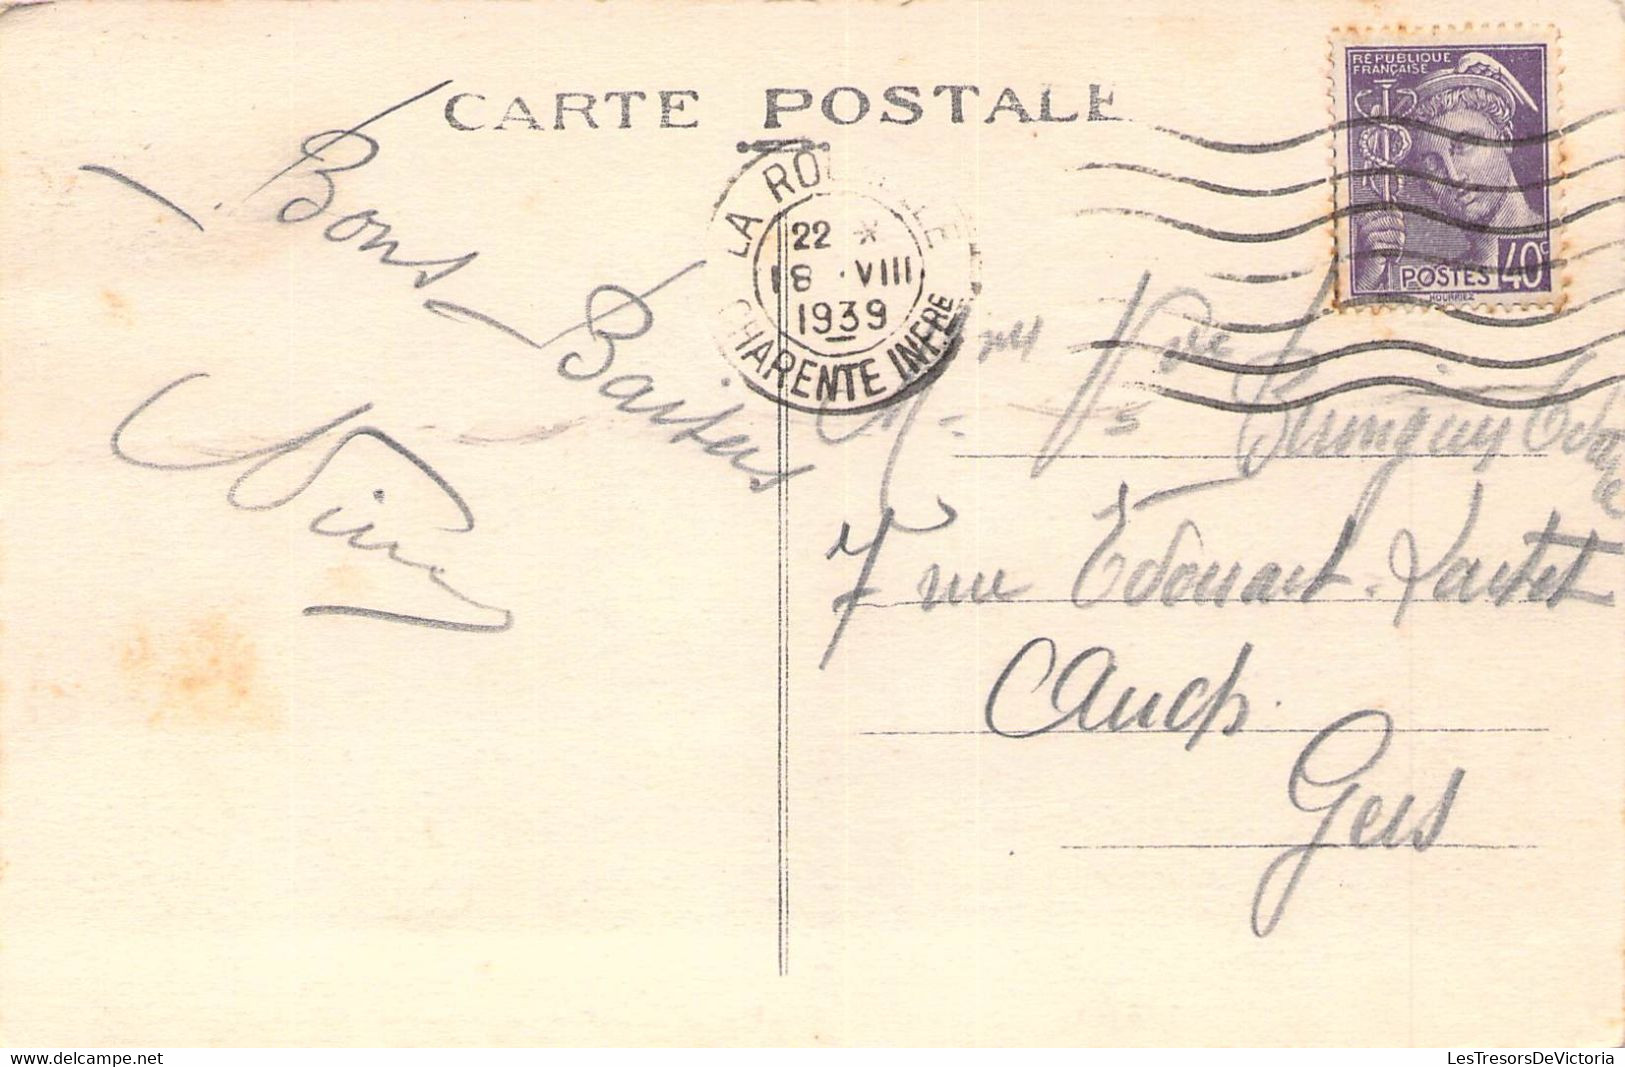 CARTE POSTALE
REPUBLIQUE
FRANÇAISE
POSTES 40c
HOURRIEZ
LA RO
22 *
18 VIII
1939
CHARENTE INFRE
Bons Baisers
7 rue Edouard Lartet
Auch
Gers
www.delcampe.net
LesTresorsDeVictoria